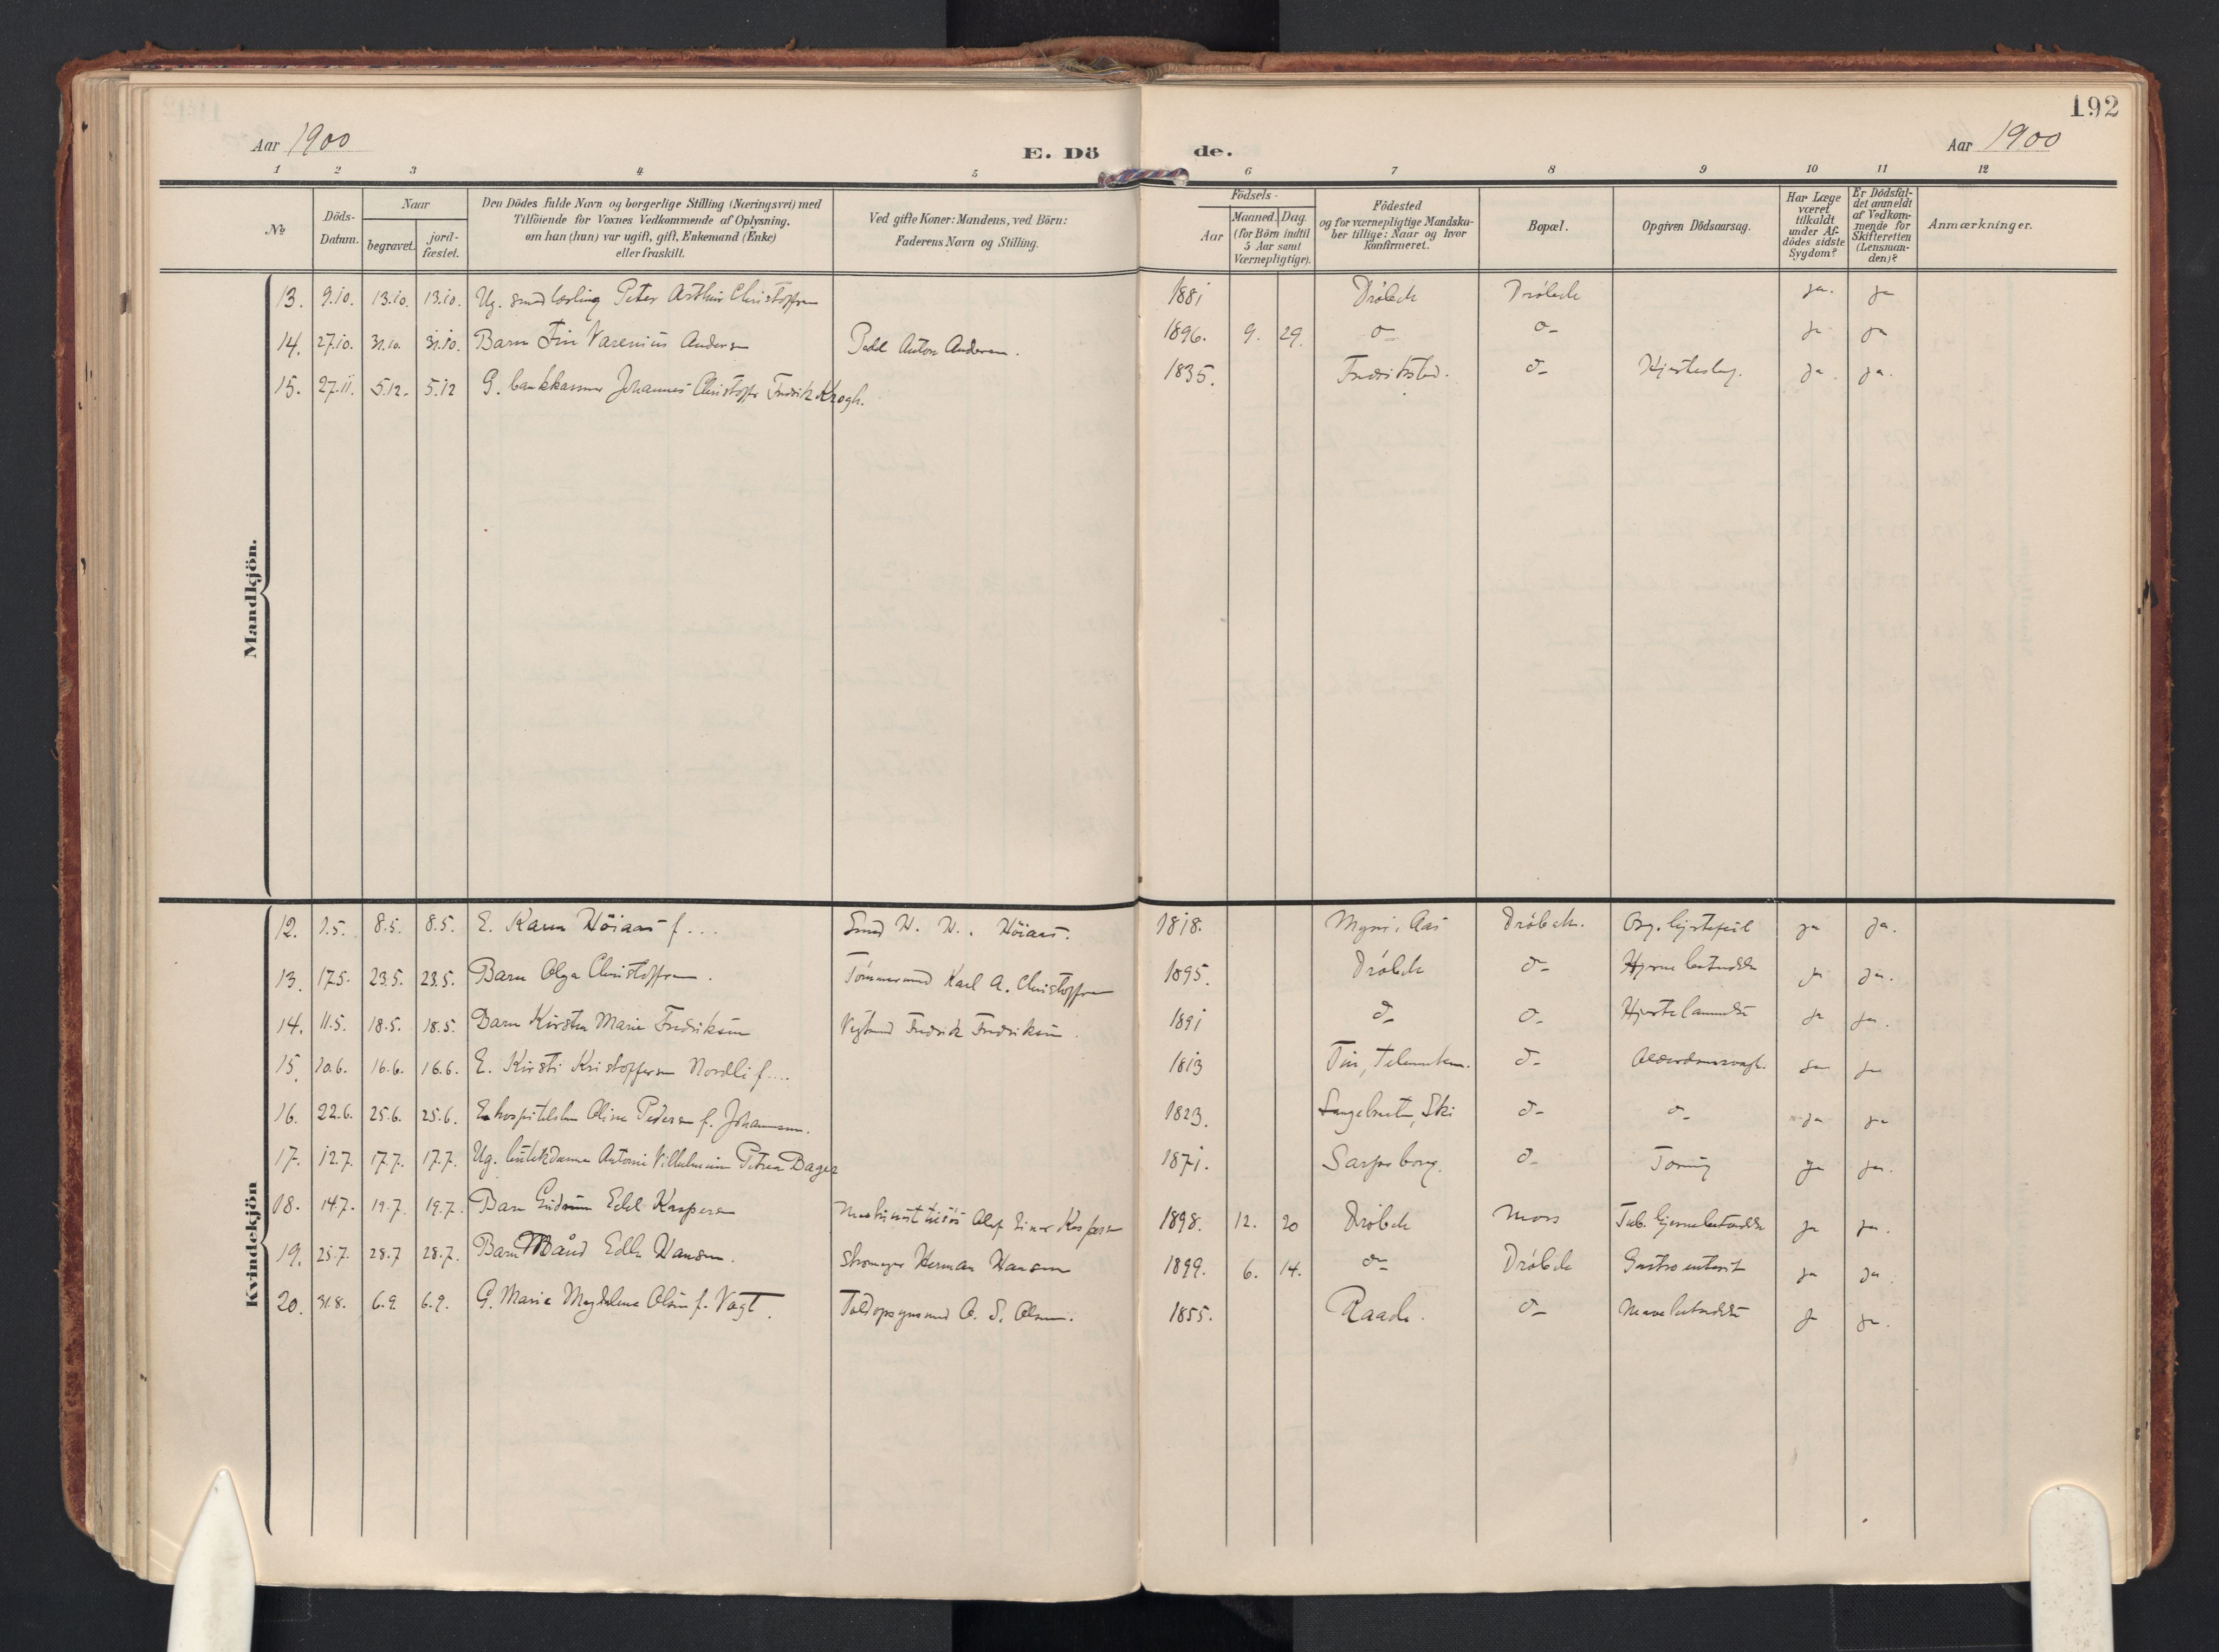 192
Aar 1900
E. Dö de.
Aar 1900
1 2 3 4 5 6 7 8 9 10 11 12
№
Döds-
Datum.
Naar
begravet.
jord-
fæstet.
Den Dödes fulde Navn og borgerlige Stilling (Næringsvei) med
Tilföiende for Voxnes Vedkommende af Oplysning.
om han (hun) var ugift, gift, Enkemand (Enke)
eller fraskilt.
Ved gifte Koner: Mandens, ved Börn:
Faderens Navn og Stilling.
Födsels-
Aar
Maaned. Dag.
(for Börn indtil
5 Aar samt
Værnepligtige).
Födested
og for værnepligtige Mandska-
ber tillige: Naar og hvor
konfirmeret.
Bopæl.
Opgiven Dödsaarsag.
Har Læge
været
tilkaldt
under Af-
dödes sidste
Sygdom?
Er Dödsfal-
det anmeldt
af Vedkom-
mende for
Skifteretten
(Lensman-
den)?
Anmærkninger.
Mandkjön.
13. 9.10. 13.10. 13.10. Ug. smedlærling Peter Arthur Christoffersen 1881 Dröbak Dröbak ja. ja
14. 27.10. 31.10. 31.10. Barn Finn Varenius Andersen Anton Andersen. 1896. 9. 29. d- d- ja ja
15. 27.11. 5.12. 5.12 G. bankkasserer Johannes Christoffer Fredrik Krogh. 1835. Fredrikstad. d- Hjerteslag. ja. ja.
Kvindekjön
12. 1.5. 8.5. 8.5. E. Karen Höiaas f... Smed H. H. Höiaas. 1818. Myrer i Aas Dröbak. Org. hjertefeil ja ja.
13. 17.5. 23.5. 23.5. Barn Olga Christoffersen. Tömmermand Karl A. Christoffersen 1895. Dröbak d- Hjernebetændelse ja ja.
14. 11.5. 18.5. 18.5. Barn Kirsten Marie Fredriksen Fredrik Fredriksen. 1891 d- d- Hjertelammelse ja ja.
15. 10.6. 16.6. 16.6. E. Kirsti Kristoffersen Nordli f.... 1813 Tin, Telemarken. d- Alderdomssvagh. ja ja
16. 22.6. 25.6. 25.6. E. Oline Pedersen f. Johannesen. 1823. Langebraaten, Ski d- d- ja ja
17. 12.7. 17.7. 17.7. Ug. Antonie Vilhelmine Petrea Bager 1871. Sarpsborg. d- Tæring ja ja.
18. 14.7. 19.7. 19.7. Barn Gudrun Edel Kaspersen Olaf Einar Kaspersen 1898. 12. 20 Dröbak Moss Tub. hjernebetændelse ja ja.
19. 25.7. 28.7 28.7. Barn Edle Hansen. Herman Hansen 1899. 6. 14. d- Dröbak Gastroenterit ja ja
20. 31.8. 6.9. 6.9. G. Marie Magdalena Olsen f. Vogt. Toldopsynsmand O. S. Olsen. 1855. Raade. d- Mavebetændelse ja ja.